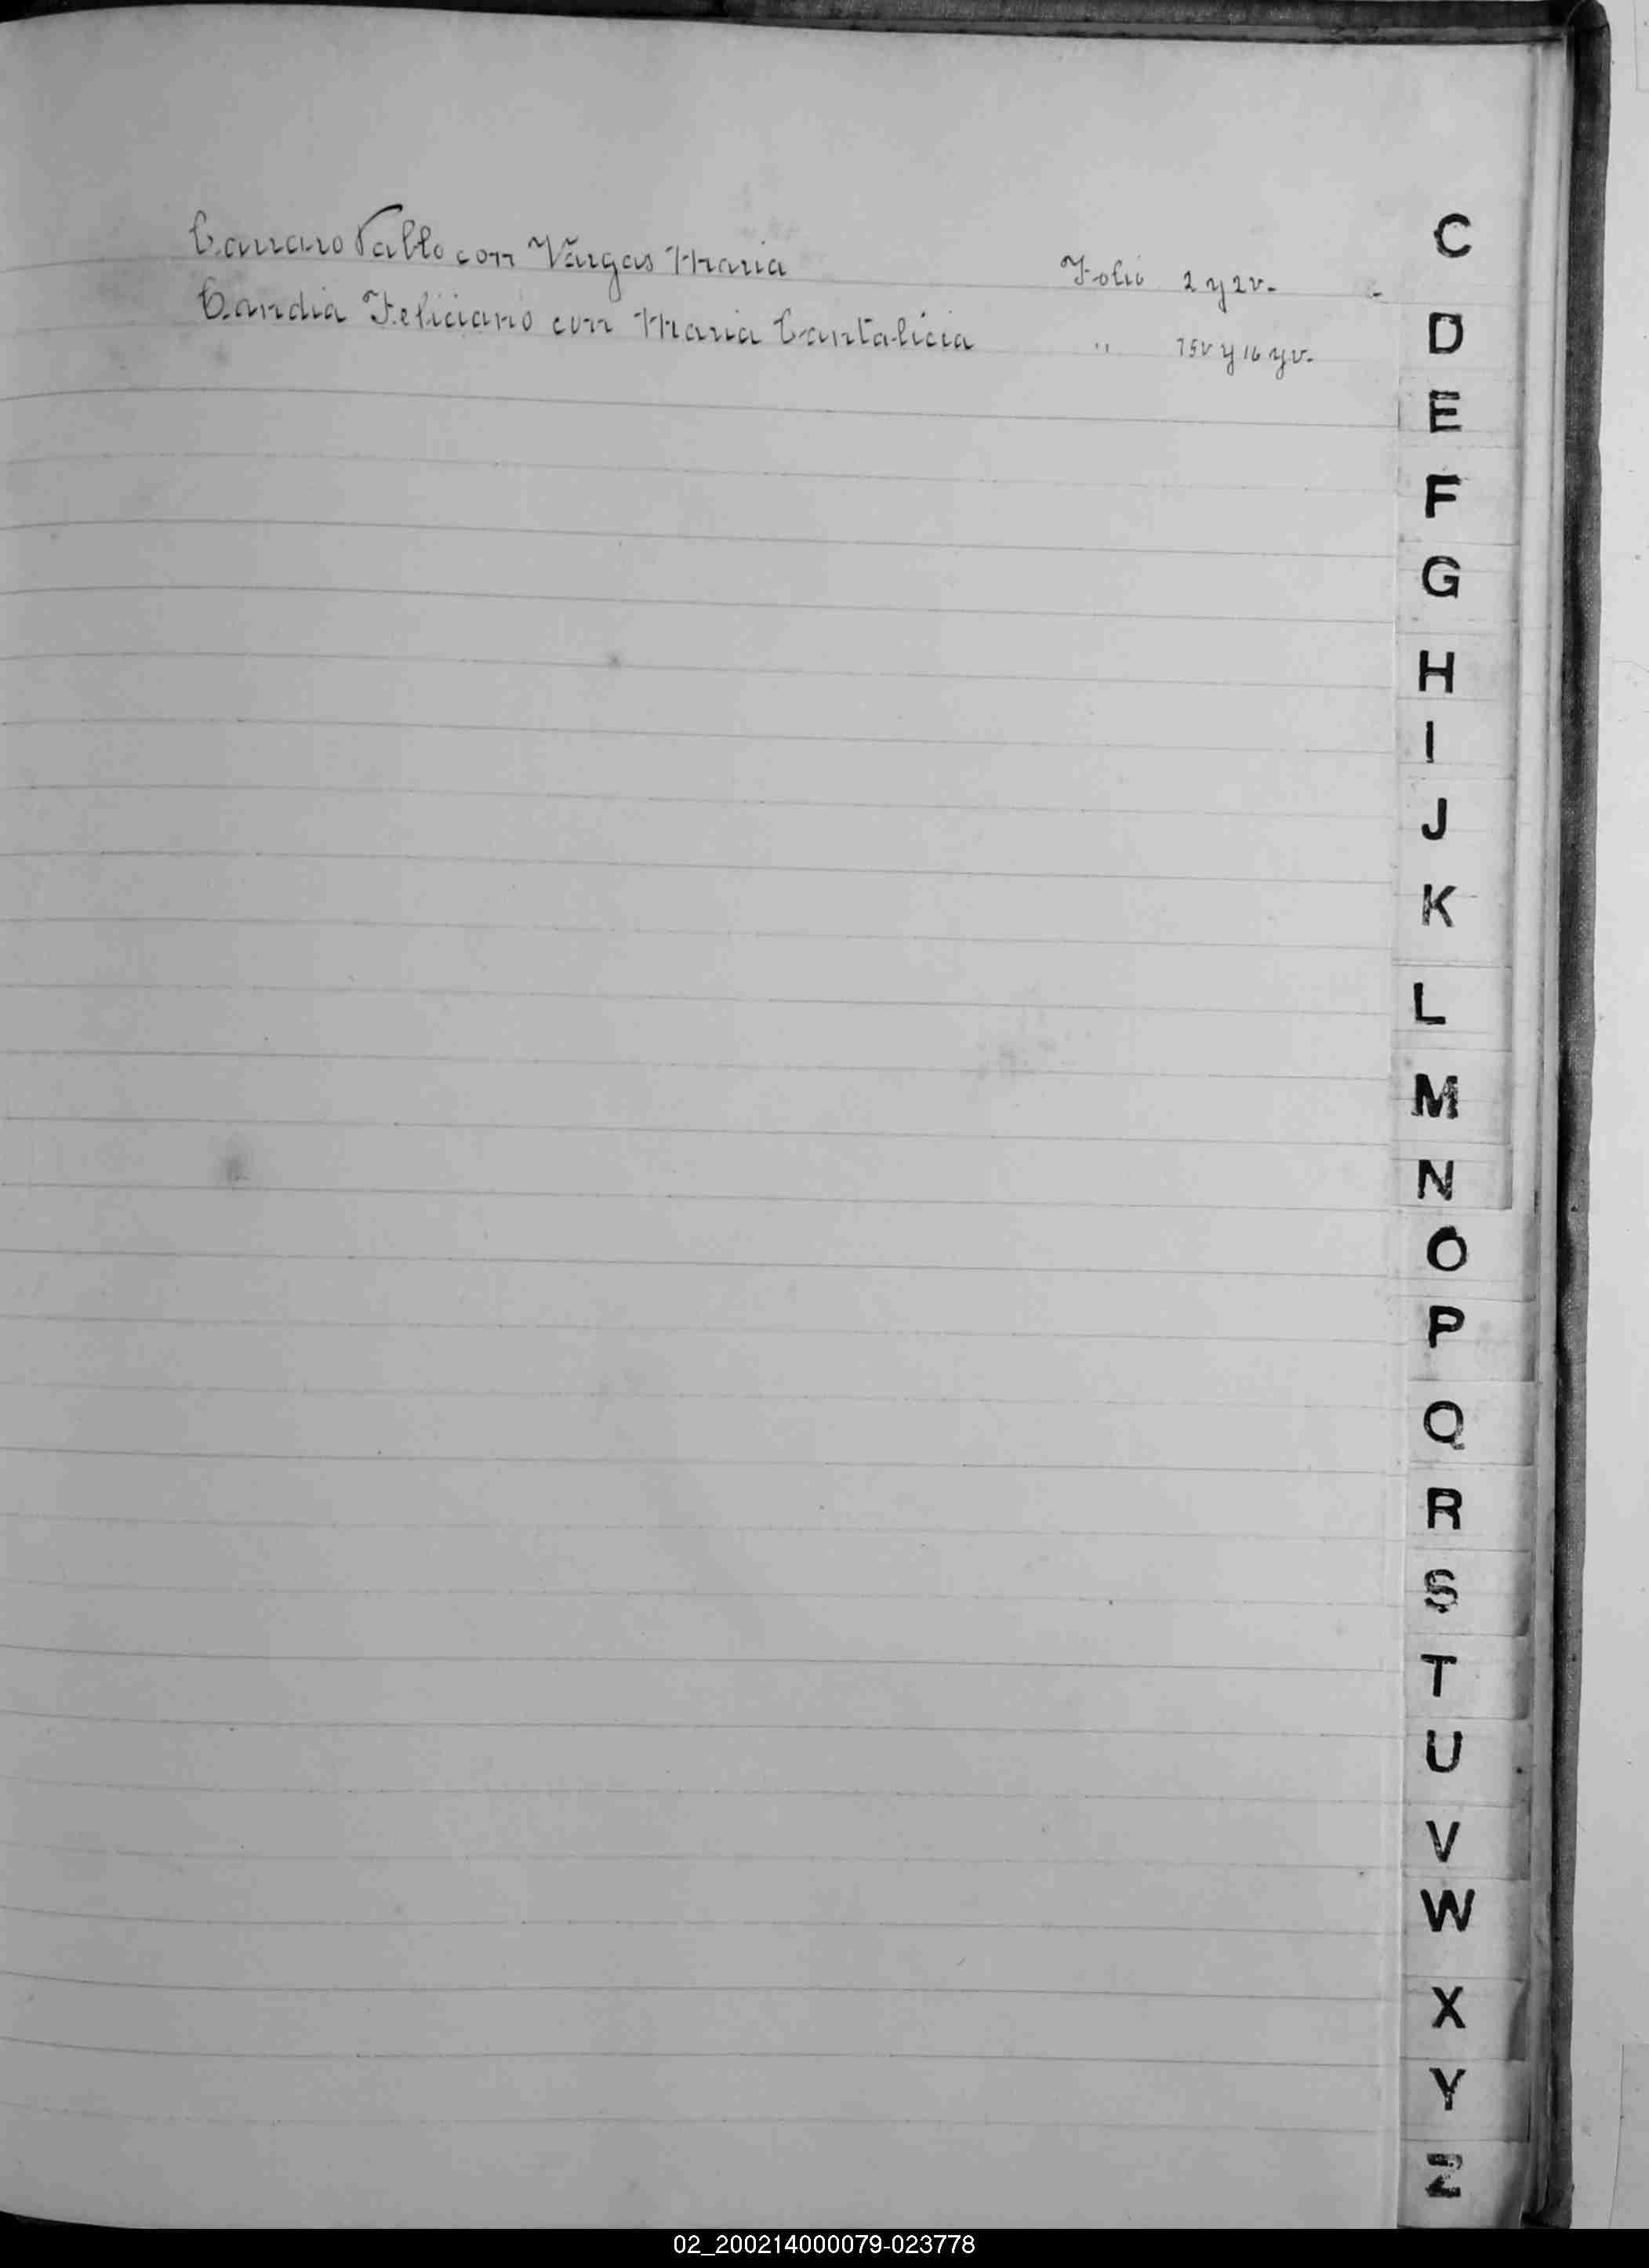 Carrano Pablo con Vargas Maria Folio 2 y 2v.-
Candia Feliciano con Maria Cantalicia " 15v y 16 y v.-
C
D
E
F
G
H
I
J
K
L
M
N
O
P
Q
R
S
T
U
V
W
X
Y
Z
02_200214000079-023778